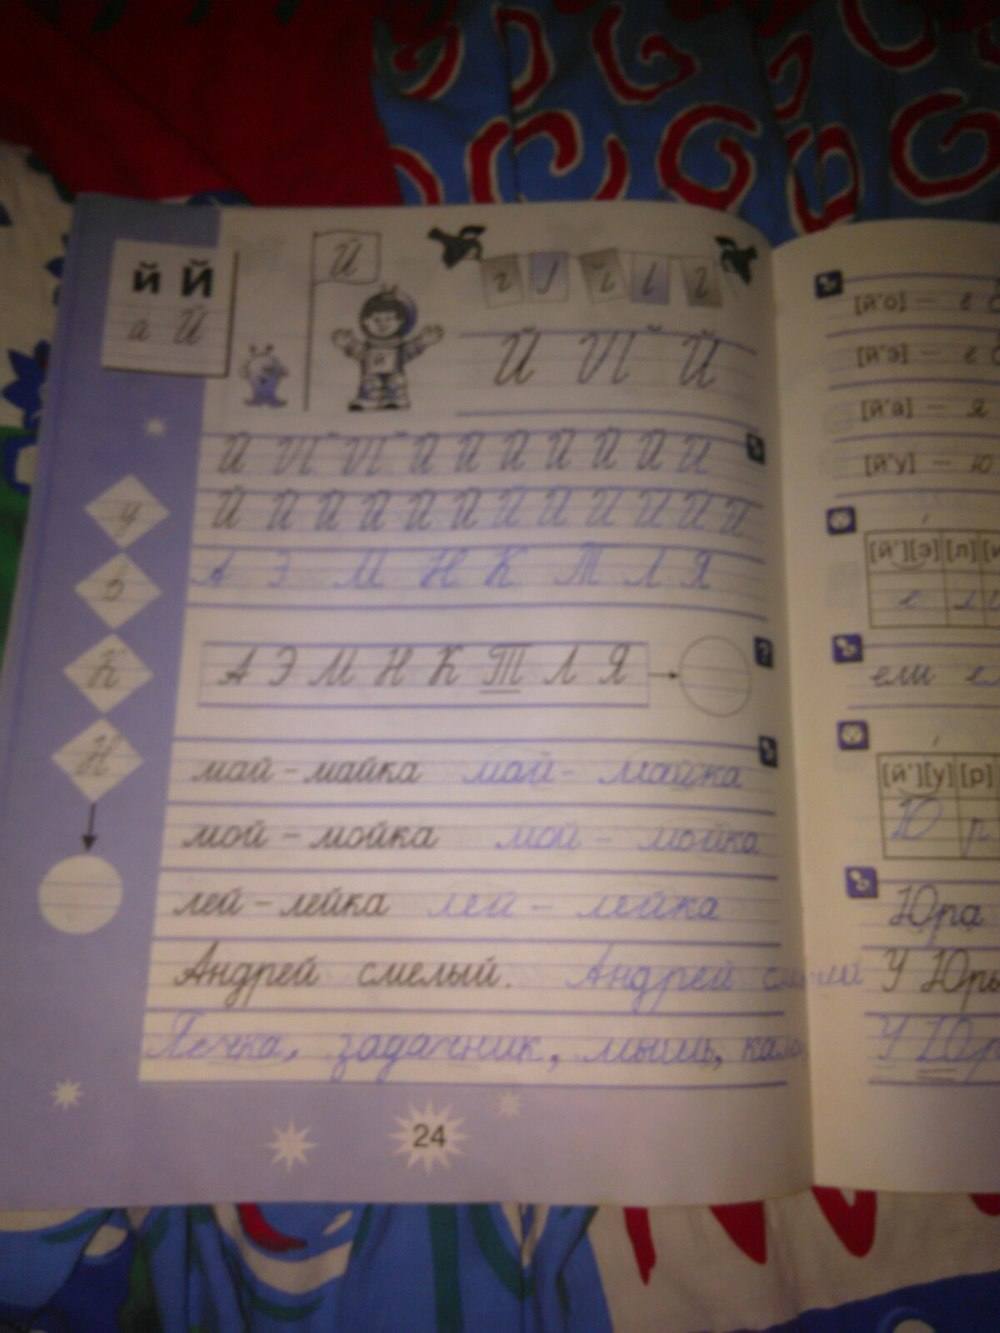 й Й
Й
й Й
Й Й Й
Й Й Й Й Й Й Й Й Й Й
Й Й Й Й Й Й Й Й Й Й Й Й
у
А Э М Н К Т Л Я
К
А Э М Н К Т Л Я
?
Н
май – майка май – майка
мой – мойка мой – мойка
лей – лейка лей – лейка
Андрей смелый. Андрей
Печка, задачник, мышь,
24
[й'о] – е
[й'э] – е
[й'а] – я
[й'у] – ю
[й'][э][л]
е л
ели
[й'][у][р]
Ю р
Юра
У Юры
У